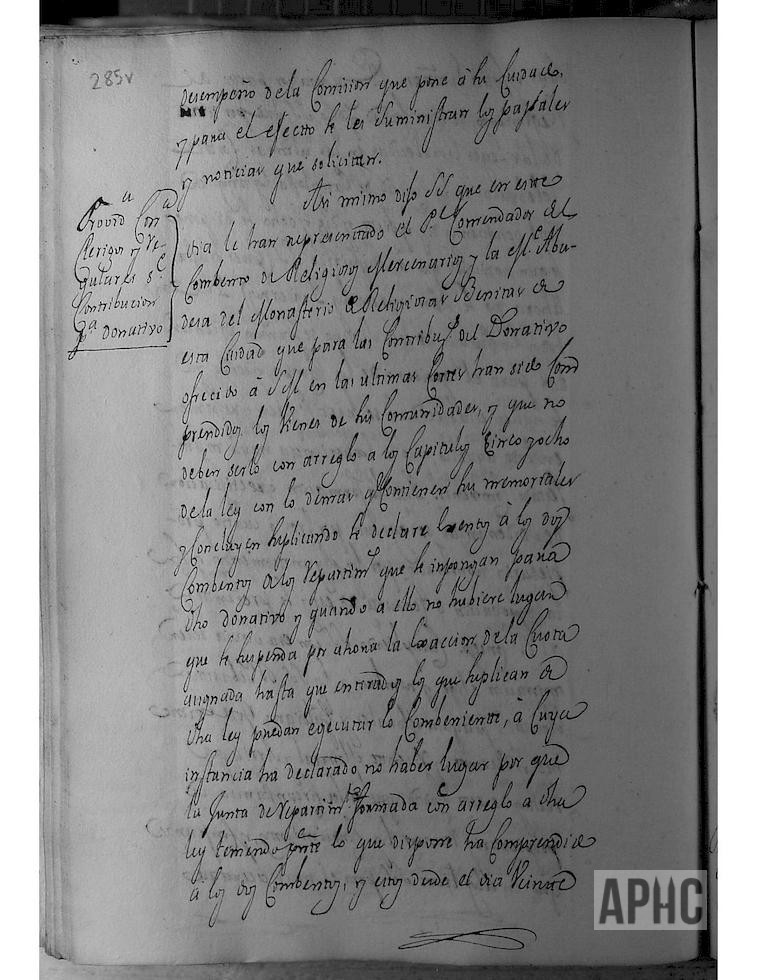 285v
desempeño dela Comision que pone â su Cuidado,
y para el efecto se les Suministran los papeles
y noticias que soliciten.
Asi mimo dijo SS. que en este
Provid.a Con
Clerigos y Re-
gulares s.e
Contribucion
p.a donativo
dia le han representado el P.e Comendador del
Combento de Religiosos Mercenarios y la M.e Aba-
desa del Monasterio de Religiosas Benitas de
esta Ciudad que para las Contribus.s del Donativo
ofrecido â S.M en las ultimas Cortes han sido Com
prendidos los bienes de sus Comunidades, y que no
deben serlo con arreglo a los Capitulos Cinco y ocho
de la ley con lo demas q.e Contienen sus memoriales
y Concluyen suplicando se declare Exentos â los dos
Combentos de los repartim.s que se inpongan para
dho donativo y quando a ello no hubiere lugar
que se suspenda por ahora la Exaccion de la Cuota
asignada hasta que enterados los que suplican de
dha ley puedan egecutar lo Combeniente, â Cuya
instancia ha declarado no haber lugar por que
la Junta de repartim.tos formada con arreglo a dha
ley teniendo pnte lo que dispone ha Comprendido
â los dos Combentos, y estos desde el dia Veinte
APHC